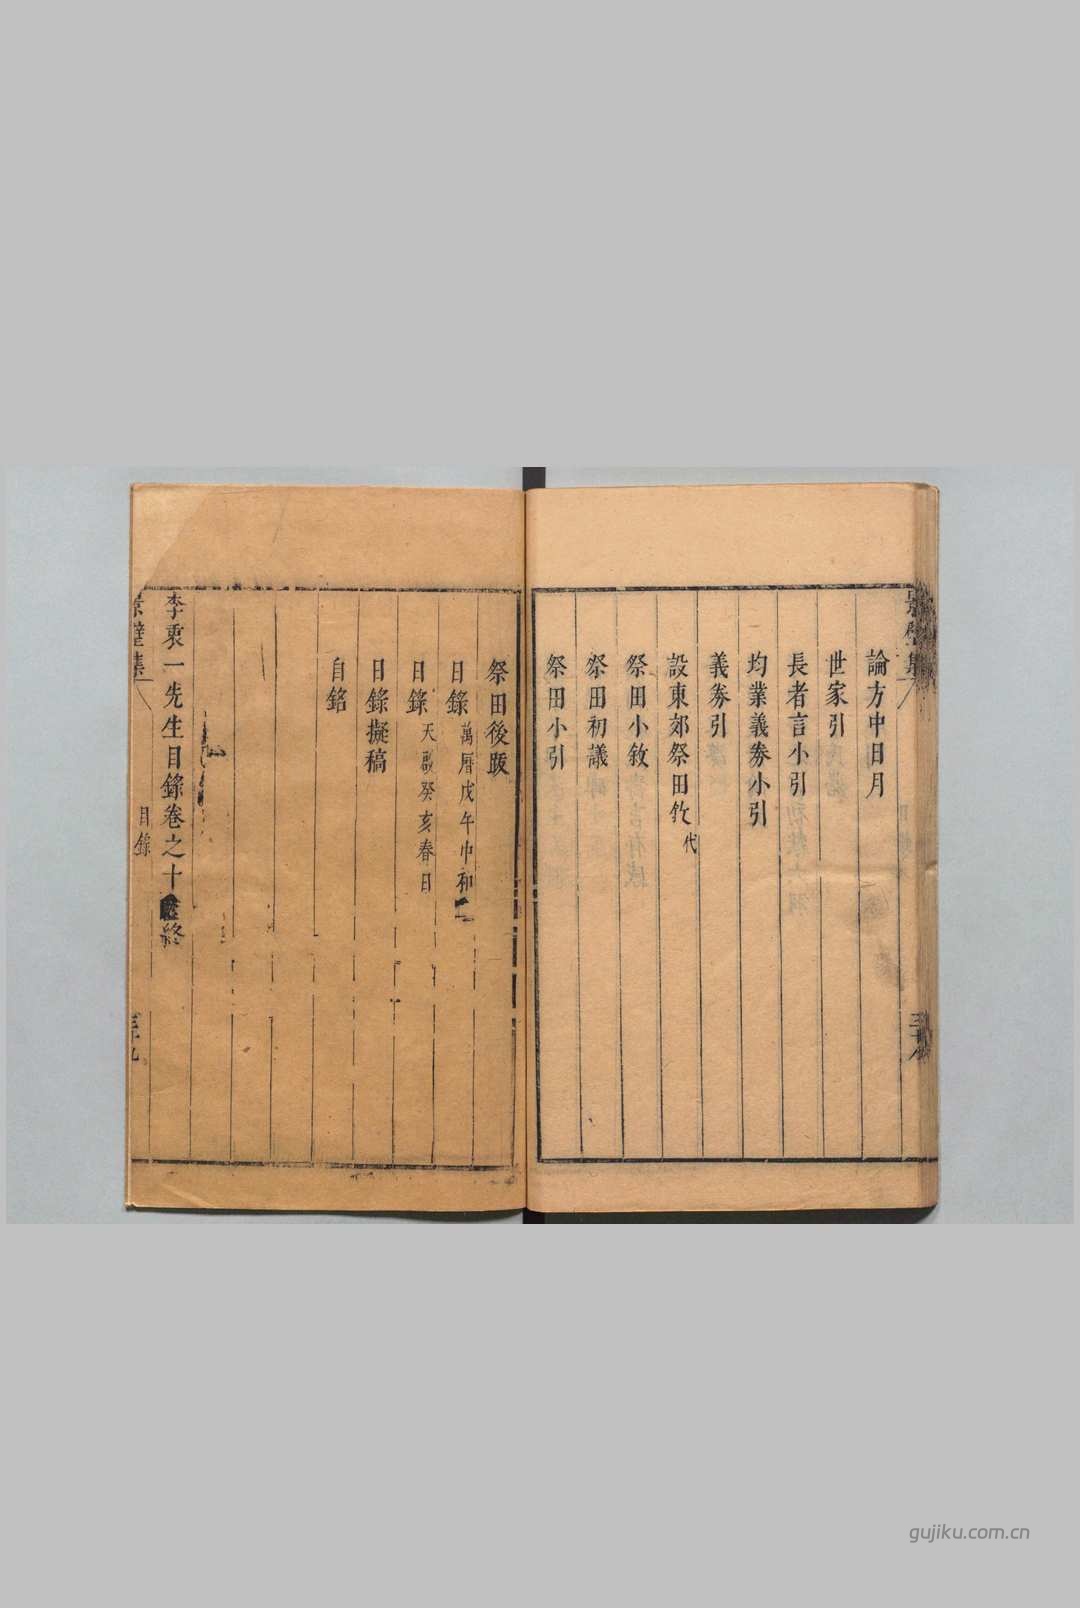 論方中日月
世家引
長者言小引
均業義券小引
義券引
設東郊祭田㪇代
祭田小敘
祭田初議
祭田小引
景璧集
三十八
祭田後䟦
日錄萬曆戊午巾和
日錄天啟癸亥春日
日錄擬稿
自銘
李衷一先生目錄卷之十終
景璧集
目錄
三十九
gujiku.com.cn